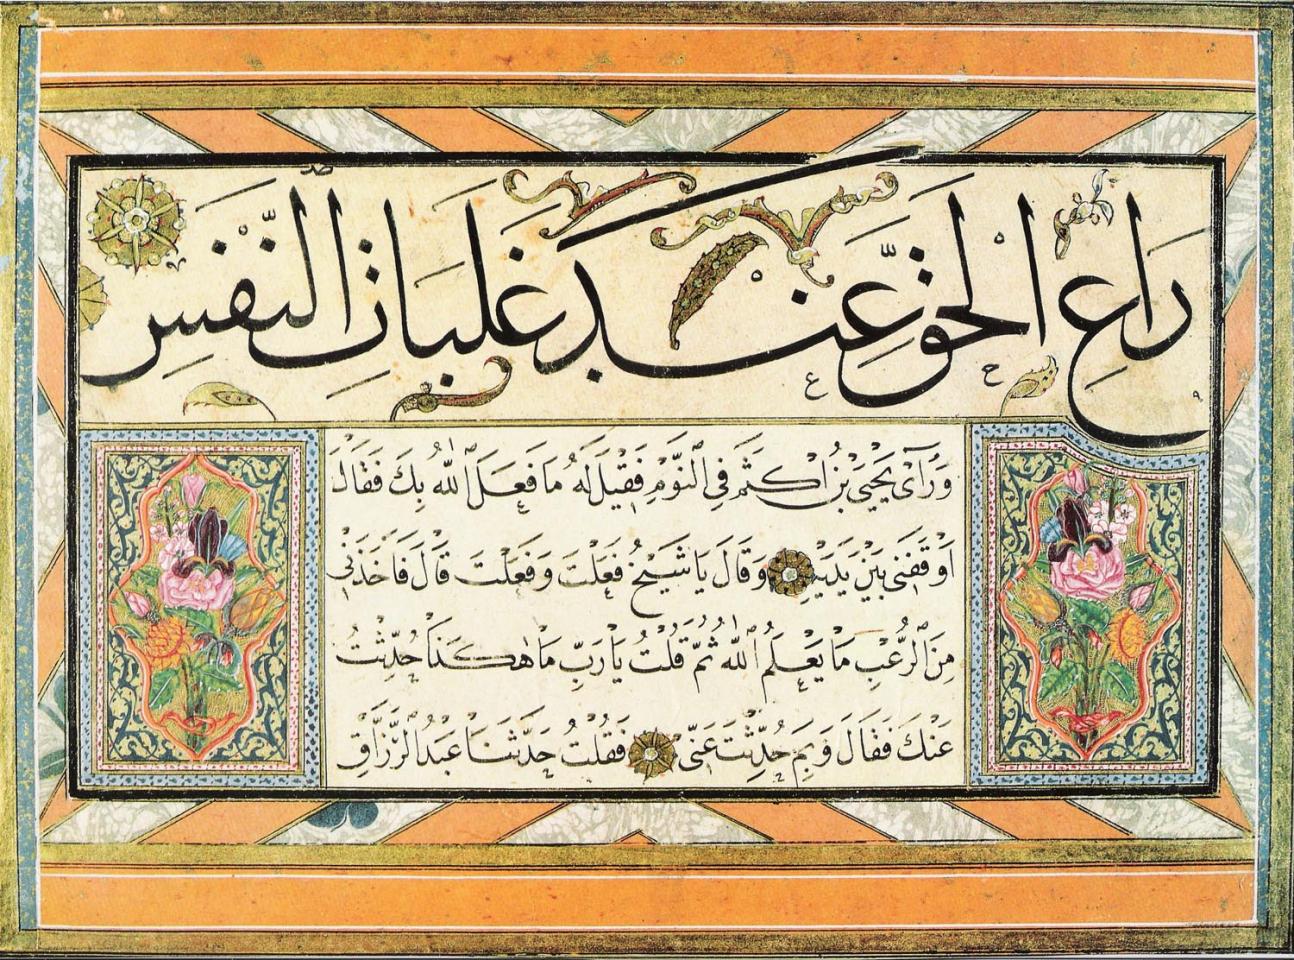 رَاعِ الْحَقَّ عِنْدَ غَلَبَاتِ النَّفْسِ
وَرَأَى يَحْيَى بْنُ اَكْثَمَ فِي النَّوْمِ فَقِيلَ لَهُ مَا فَعَلَ اللّٰهُ بِكَ فَقَالَ
اَوْقَفَنِي بَيْنَ يَدَيْهِ وَقَالَ يَا شَيْخُ فَعَلْتَ وَفَعَلْتَ قَالَ فَاَخَذَنِي
مِنَ الرُّعْبِ مَا يَعْلَمُ اللّٰهُ ثُمَّ قُلْتُ يَا رَبِّ مَا هٰكَذَا حُدِّثْتُ
عَنْكَ فَقَالَ وَبِمَ حُدِّثْتَ عَنِّي فَقُلْتُ حَدَّثَنَا عَبْدُ الرَّزَّاقِ